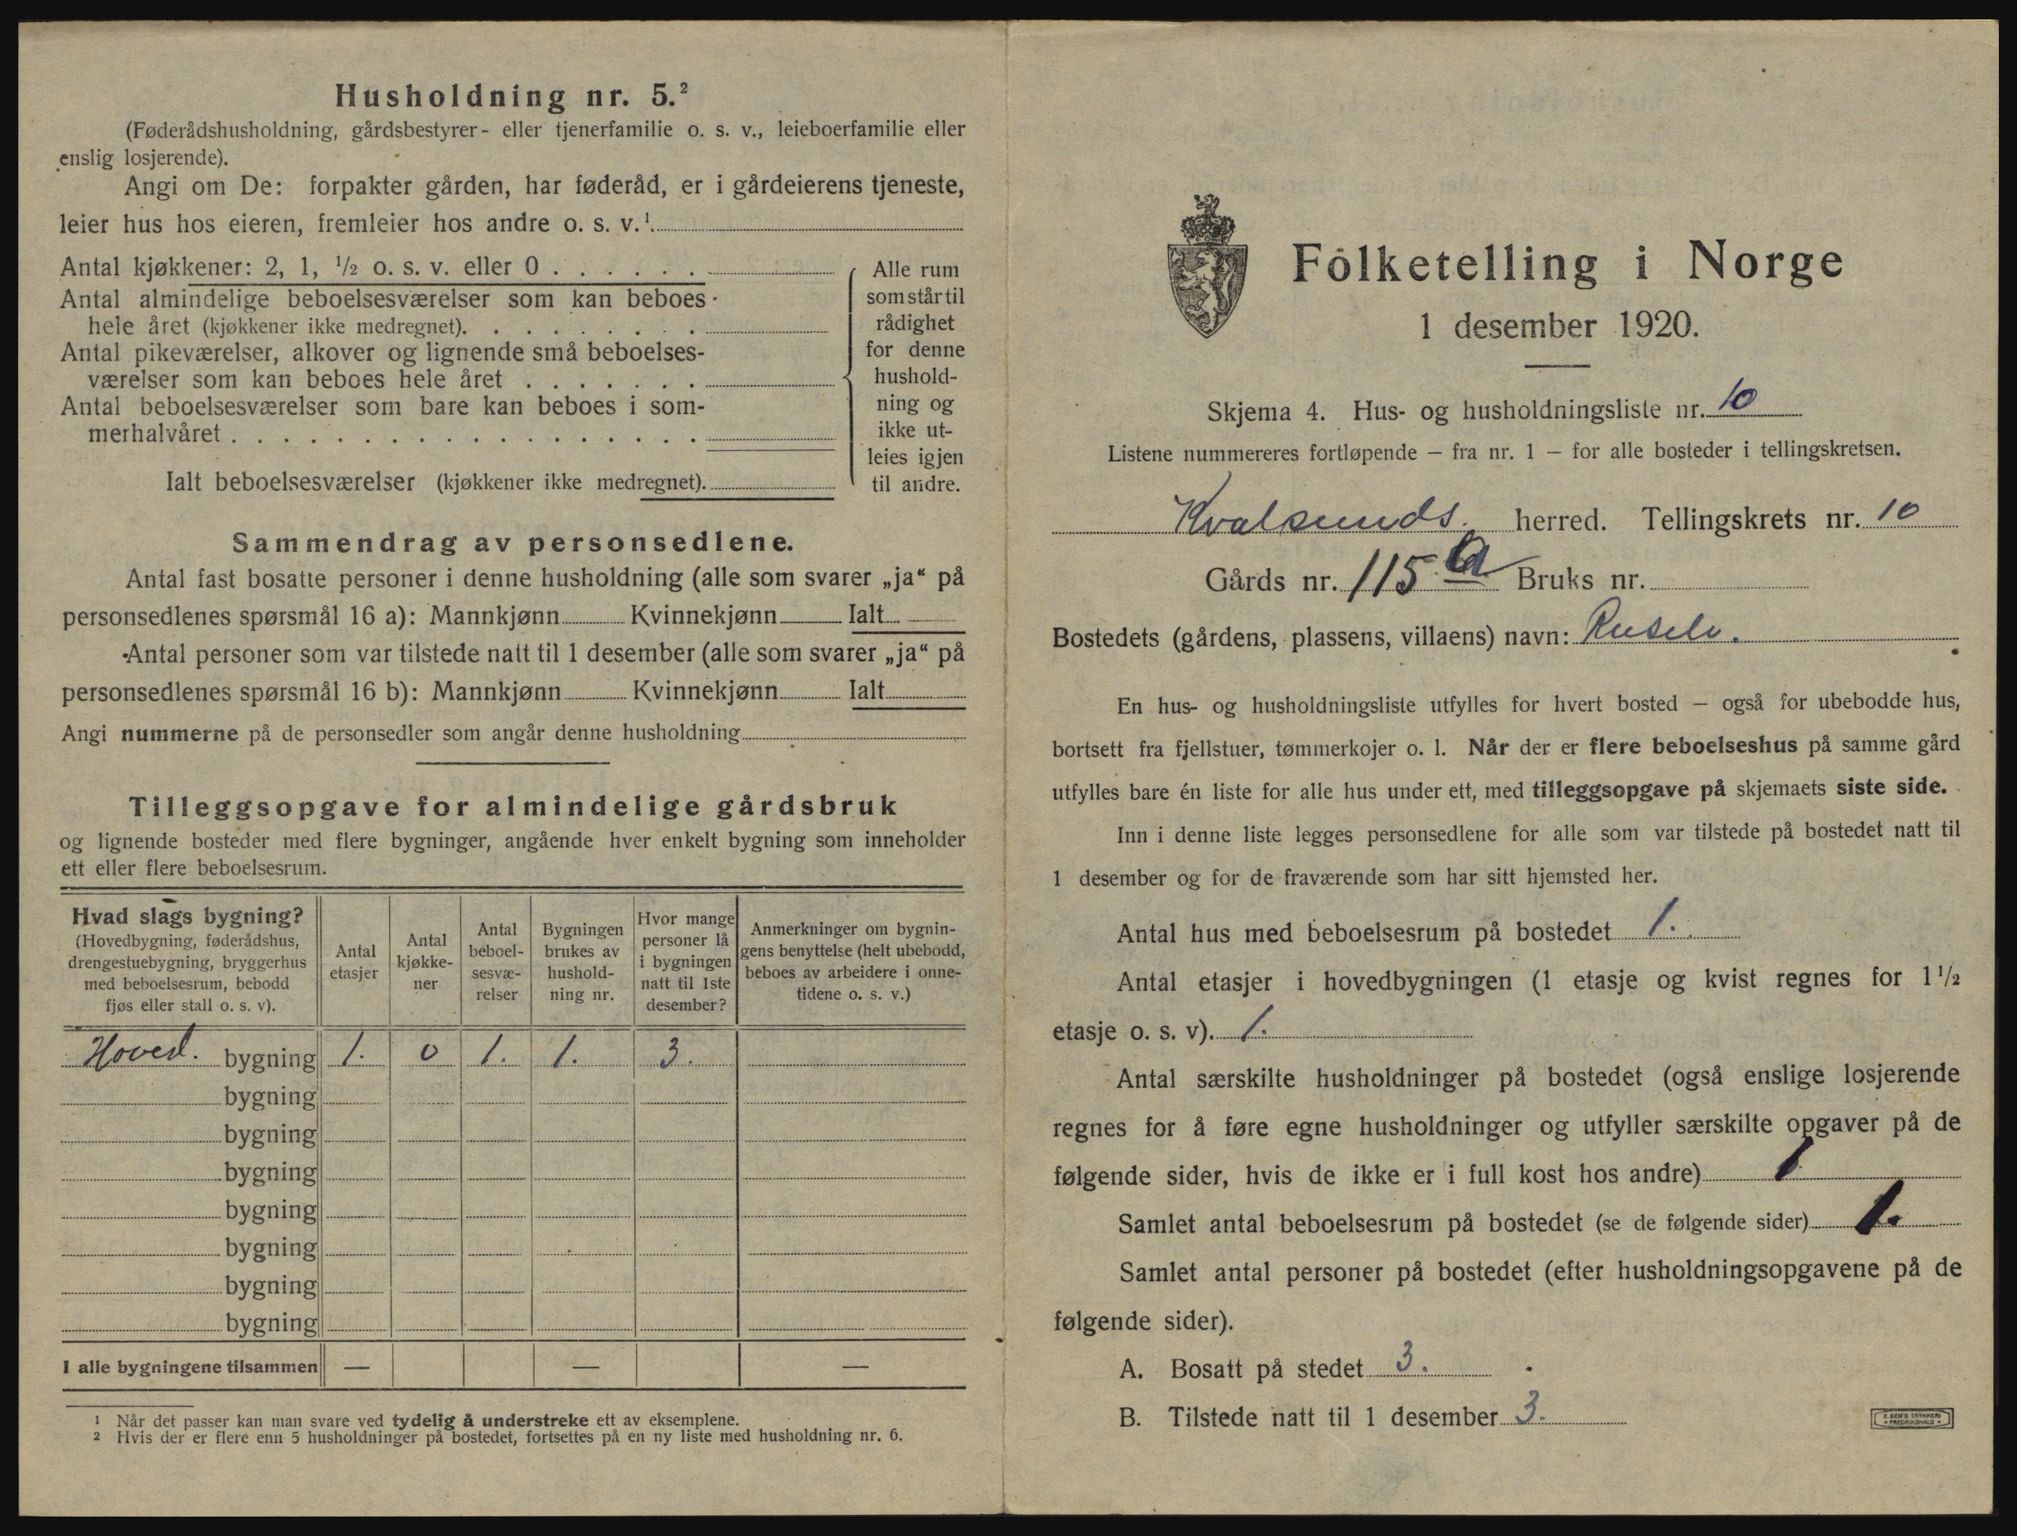 Husholdning nr. 5.²
(Føderådshusholdning, gårdsbestyrer- eller tjenerfamilie o. s. v., leieboerfamilie eller
enslig losjerende).
Angi om De: forpakter gården, har føderåd, er i gårdeierens tjeneste,
leier hus hos eieren, fremleier hos andre o. s. v.¹
Antal kjøkkener: 2, 1, ½ o. s. v. eller 0 . . . . . .
Antal almindelige beboelsesværelser som kan beboes
hele året (kjøkkener ikke medregnet). . . . . . . . .
Antal pikeværelser, alkover og lignende små beboelses-
værelser som kan beboes hele året . . . . . . .
Antal beboelsesværelser som bare kan beboes i som-
merhalvåret . . . . . . . . . . . . . . . . . .
Ialt beboelsesværelser (kjøkkener ikke medregnet).
Alle rum
som står til
rådighet
for denne
hushold-
ning og
ikke ut-
leies igjen
til andre.
Sammendrag av personsedlene.
Antal fast bosatte personer i denne husholdning (alle som svarer „ja“ på
personsedlenes spørsmål 16 a): Mannkjønn Kvinnekjønn Ialt
Antal personer som var tilstede natt til 1 desember (alle som svarer „ja“ på
personsedlenes spørsmål 16 b): Mannkjønn Kvinnekjønn Ialt
Angi nummerne på de personsedler som angår denne husholdning
Tilleggsopgave for almindelige gårdsbruk
og lignende bosteder med flere bygninger, angående hver enkelt bygning som inneholder
ett eller flere beboelsesrum.
Hvad slags bygning?
(Hovedbygning, føderådshus,
drengestuebygning, bryggerhus
med beboelsesrum, bebodd
fjøs eller stall o. s. v).
Antal
etasjer
Antal
kjøkke-
ner
Antal
beboel-
sesvæ-
relser
Bygningen
brukes av
hushold-
ning nr.
Hvor mange
personer lå
i bygningen
natt til 1ste
desember?
Anmerkninger om bygnin-
gens benyttelse (helt ubebodd,
beboes av arbeidere i onne-
tidene o. s. v.)
Hoved. bygning 1. 0 1. 1. 3.
bygning
bygning
bygning
bygning
bygning
bygning
bygning
I alle bygningene tilsammen — — —
¹ Når det passer kan man svare ved tydelig å understreke ett av eksemplene.
² Hvis der er flere enn 5 husholdninger på bostedet, fortsettes på en ny liste med husholdning nr. 6.
Folketelling i Norge
1 desember 1920.
Skjema 4. Hus- og husholdningsliste nr. 10
Listene nummereres fortløpende — fra nr. 1 — for alle bosteder i tellingskretsen.
Kvalsunds. herred. Tellingskrets nr. 10
Gårds nr. 115 a Bruks nr.
Bostedets (gårdens, plassens, villaens) navn: Ruselv.
En hus- og husholdningsliste utfylles for hvert bosted — også for ubebodde hus,
bortsett fra fjellstuer, tømmerkojer o. l. Når der er flere beboelseshus på samme gård
utfylles bare én liste for alle hus under ett, med tilleggsopgave på skjemaets siste side.
Inn i denne liste legges personsedlene for alle som var tilstede på bostedet natt til
1 desember og for de fraværende som har sitt hjemsted her.
Antal hus med beboelsesrum på bostedet 1.
Antal etasjer i hovedbygningen (1 etasje og kvist regnes for 1½
etasje o. s. v). 1.
Antal særskilte husholdninger på bostedet (også enslige losjerende
regnes for å føre egne husholdninger og utfyller særskilte opgaver på de
følgende sider, hvis de ikke er i full kost hos andre) 1
Samlet antal beboelsesrum på bostedet (se de følgende sider) 1.
Samlet antal personer på bostedet (efter husholdningsopgavene på de
følgende sider).
A. Bosatt på stedet 3.
B. Tilstede natt til 1 desember 3.
E. SEM'S TRYKKERI
FREDRIKSHALD